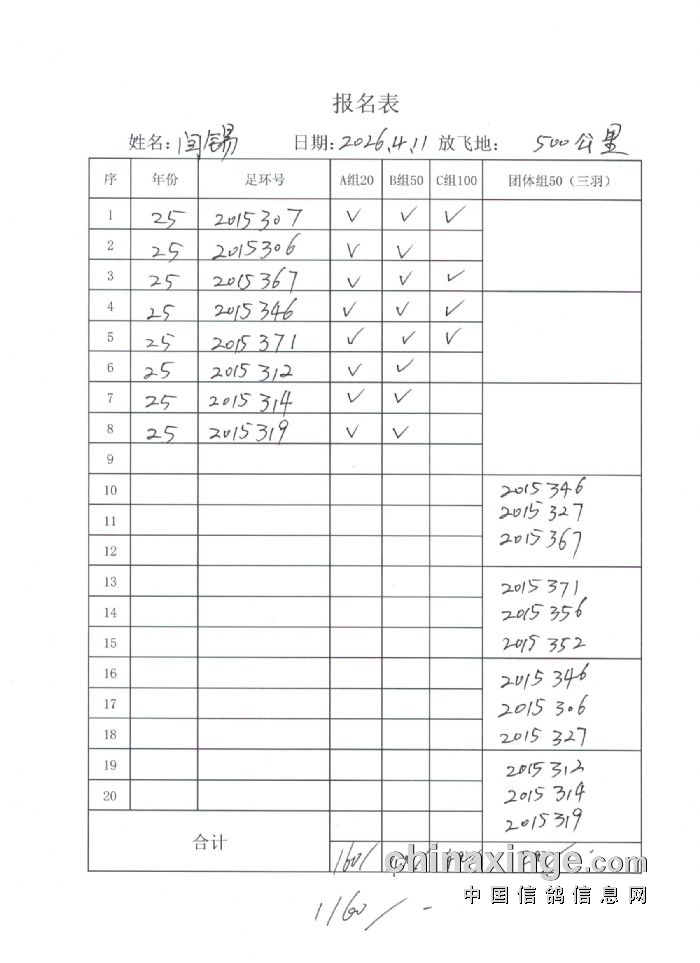 报名表
姓名: 闫锡 日期: 2026.4.11 放飞地: 500公里
序 年份 足环号 A组20 B组50 C组100 团体组50（三羽）
1 25 2015307 ✓ ✓ ✓
2 25 2015306 ✓ ✓
3 25 2015367 ✓ ✓ ✓
4 25 2015346 ✓ ✓ ✓
5 25 2015371 ✓ ✓ ✓
6 25 2015312 ✓ ✓
7 25 2015314 ✓ ✓
8 25 2015319 ✓ ✓
9
10 2015346
11 2015327
12 2015367
13 2015371
14 2015356
15 2015352
16 2015346
17 2015306
18 2015327
19 2015312
20 2015314
2015319
合计
160/
chinaxinge.com
中国信鸽信息网
1160/-